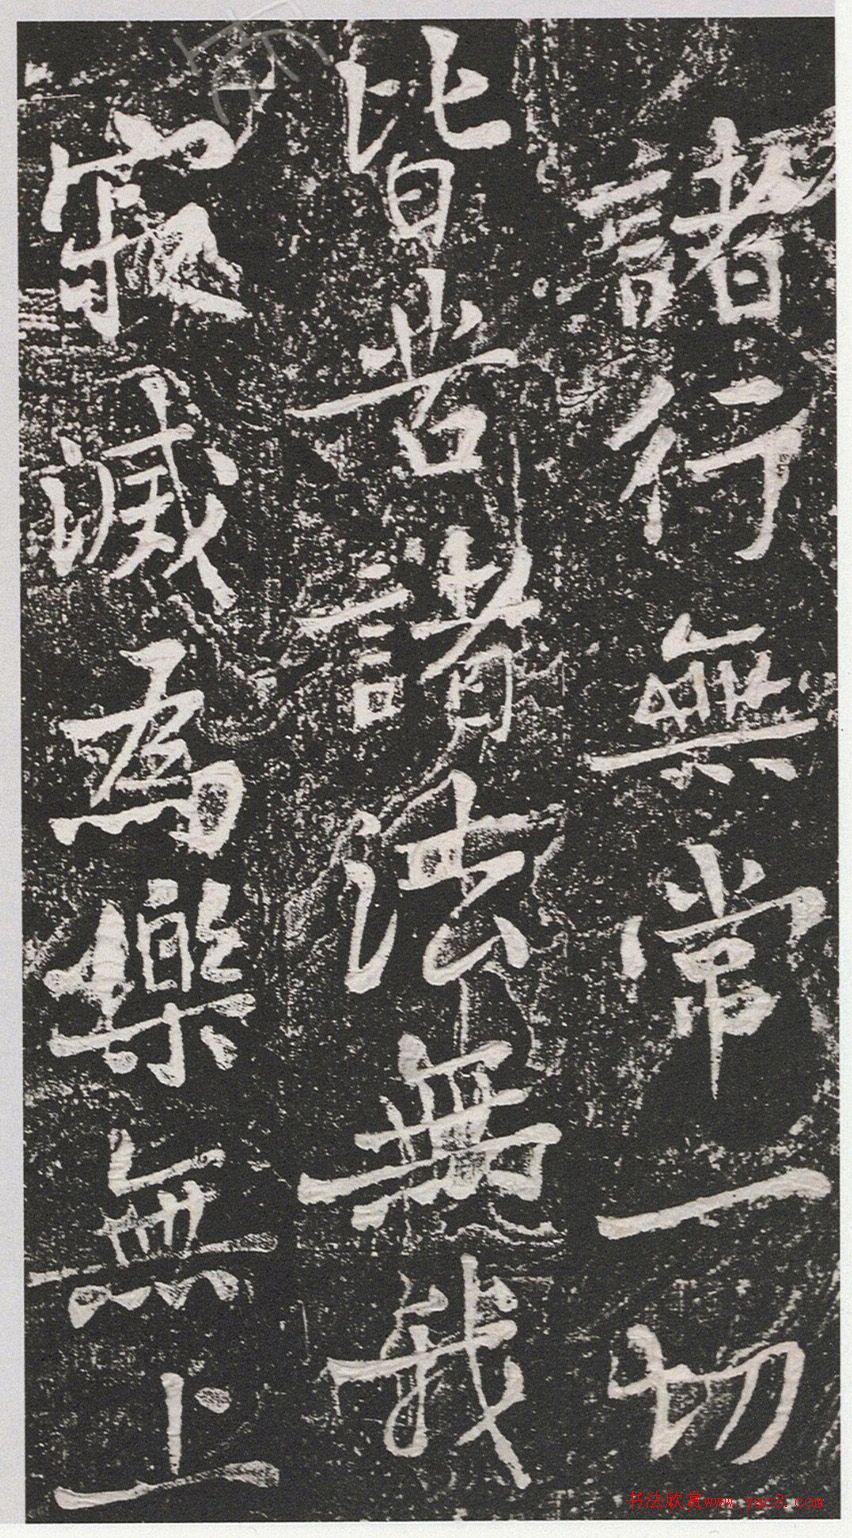 諸行無常一切
皆苦諸法無我
寂滅為樂無上
书法欣赏www.yac8.com